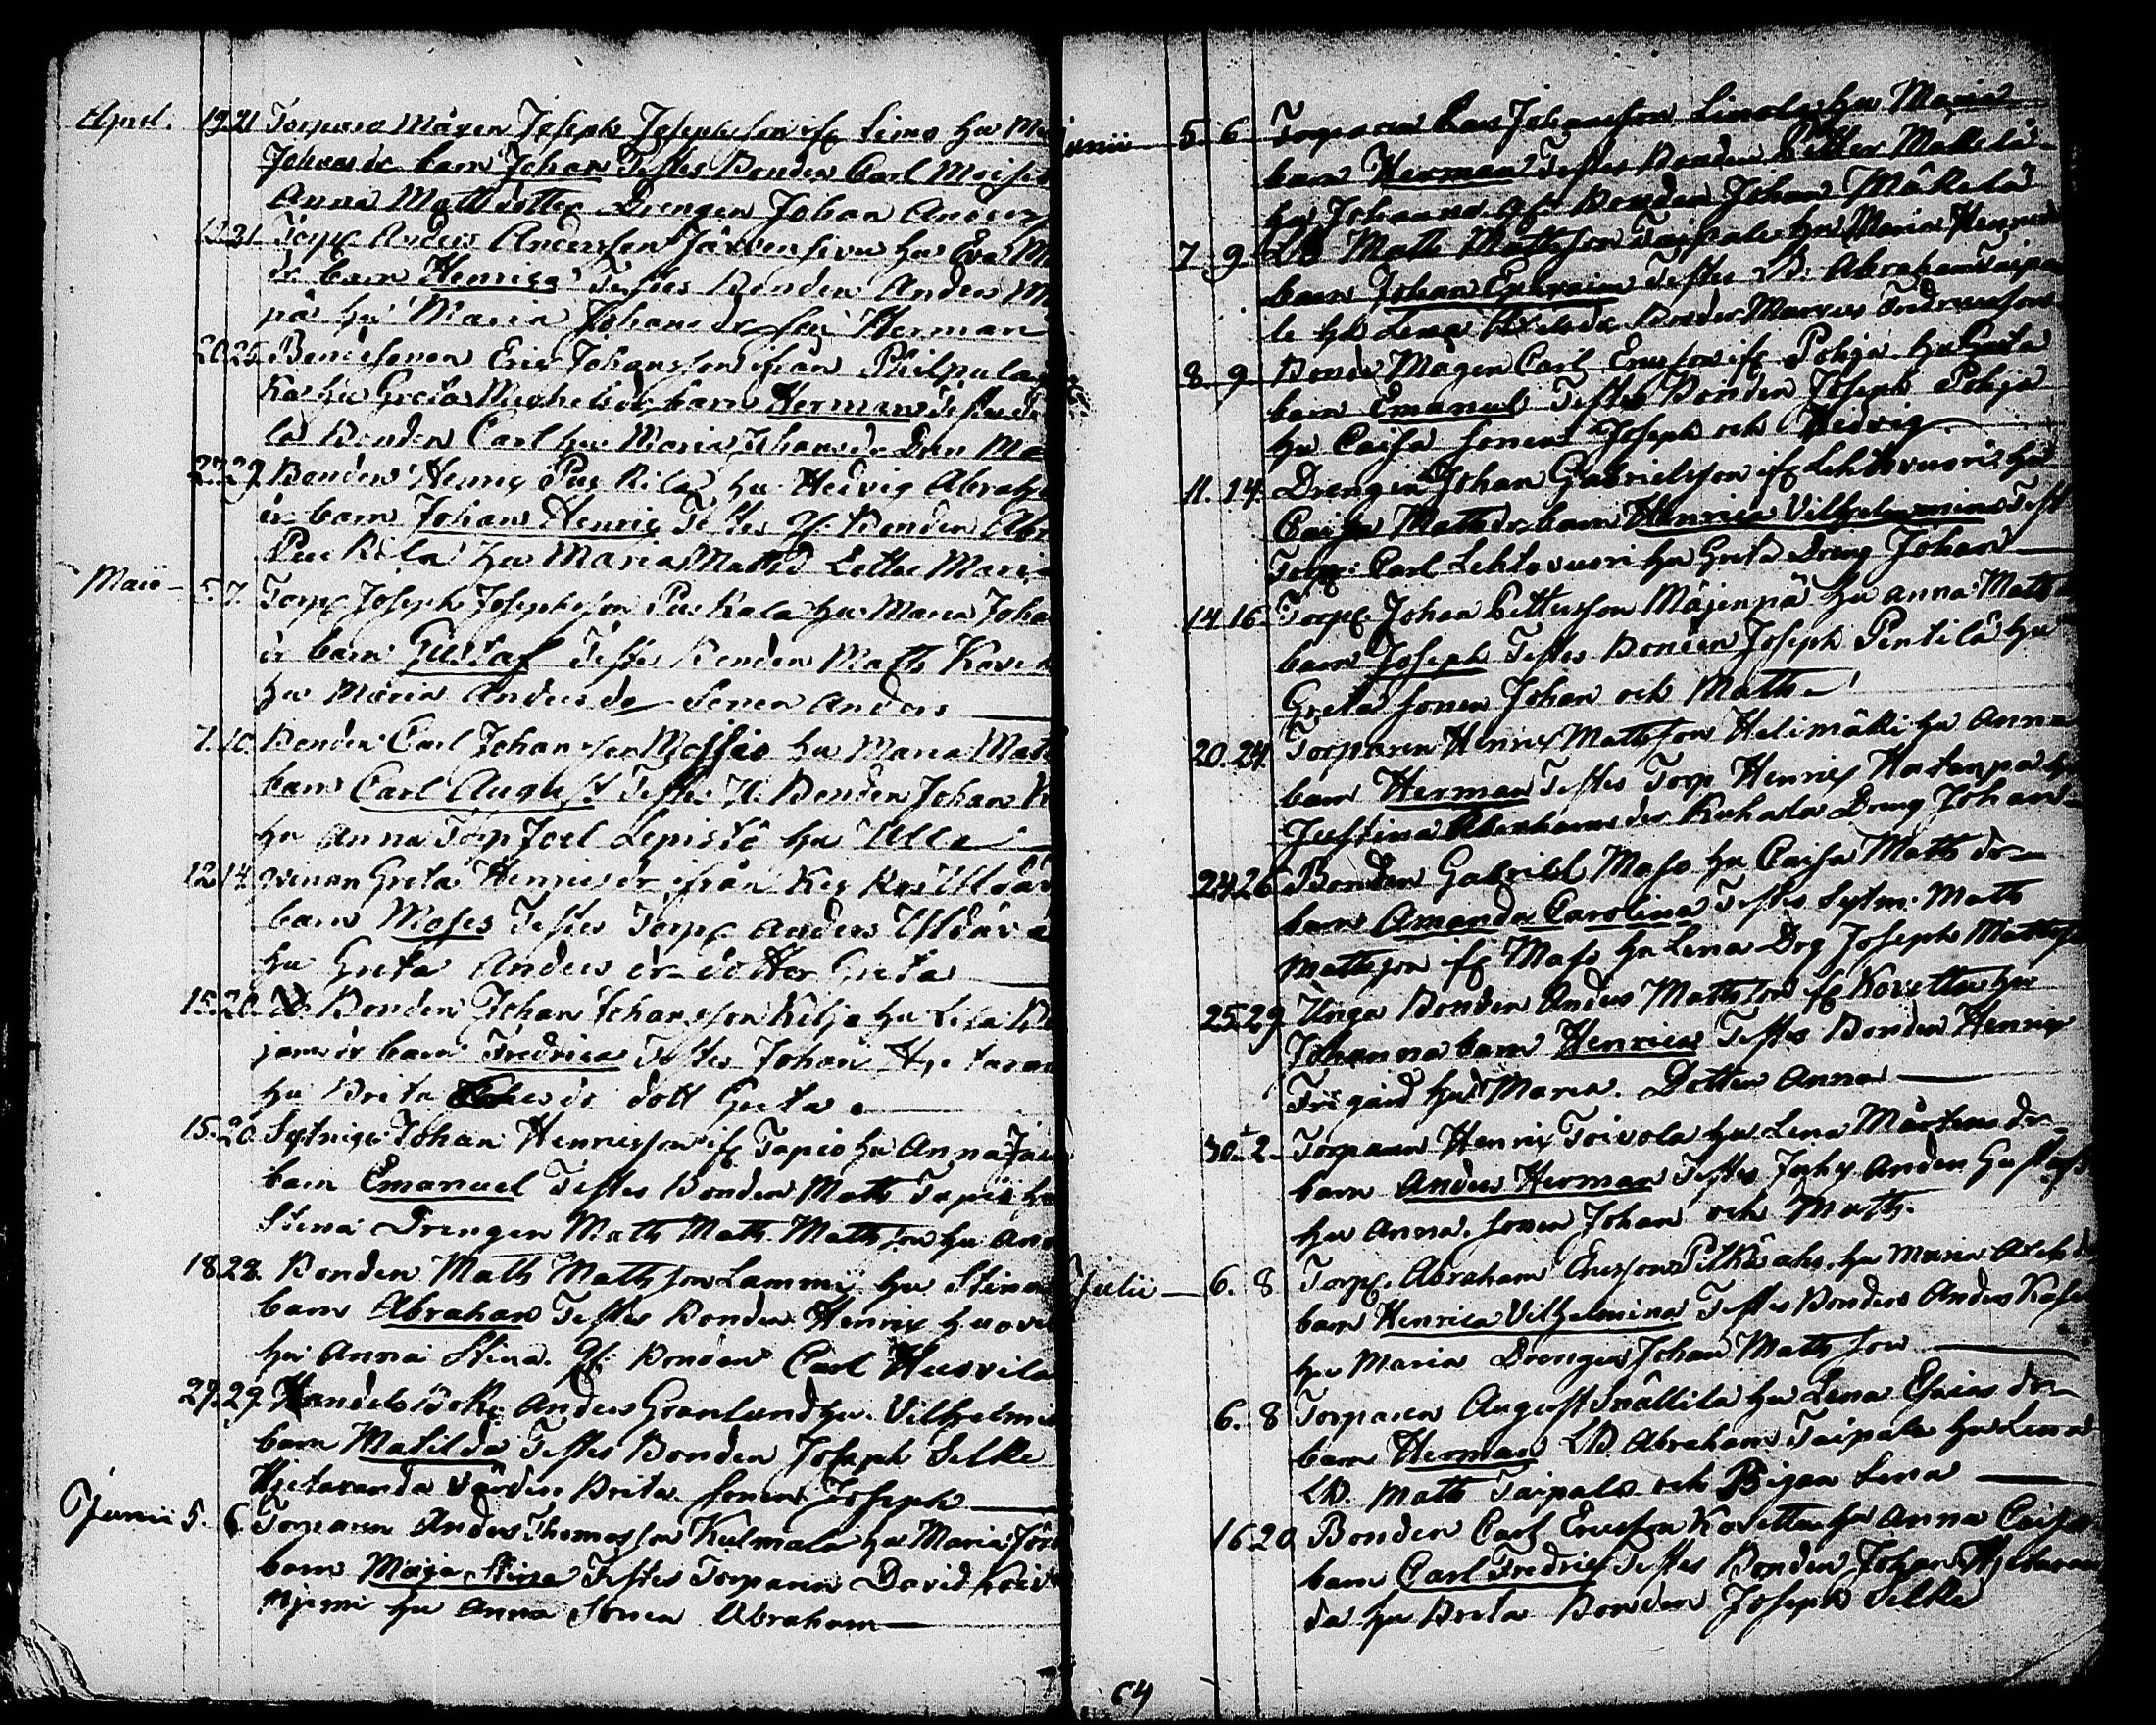 April. 19.21 Torpare Mågen Joseph Josephsson if Simo hu
Johansdr barn Johan Testes Bonden Carl Moisi
Anna Mattsdotter Drengen Johan Anders
12.21. Torp. Anders Andersson Järvensivu hu Eva M
dr barn Henrica Testes Bonden Anders M
pä hu Maria Johansdr son Herman
20.25. Bondesonen Eric Johansson ifrån Philpula
ka hu Greta Michelsdr barn Herman Testes
la Bonden Carl hu Maria Johansdr Dren Ma
27.29. Bonden Henric Puckila hu Hedvig Abrah
dr barn Johan Henric Testes gf. Bonden Abr
Puckila hu Maria Mattsd Dotter Maria
Maii - 5.7. Torp. Joseph Josephsson Puckala hu Maria Joha
dr barn Gustaf Testes Bonden Matts Kove
hu Maria Andersdr Sonen Anders
7.10. Bonden Carl Johansson Moissio hu Maria Matt
barn Carl August Testes U. Bonden Johan
hu Anna Torp Joel Lepistö hu Ulla
12.14. qvinan Greta Henricsdr ifrån
barn Moses Testes Torp. Anders
hu Greta Andersdr dotter Greta
15.20. Bonden Johan Johansson Kilja hu Lisa
jamsdr barn Fredrica Testes Johan Hietaran
hu Brita dott Greta
15.20. Sytning. Johan Henricsson if Tapio hu Anna
barn Emanuel Testes Bonden Matts Tapio hu
Stina Drengen Matts Matts Mattsson hu Ann
18.28. Bonden Matts Mattsson Lammi hu Stina
barn Abraham Testes Bonden Henric Huovil
hu Anna Stina. gf. Bonden Carl Huovila
27.29. Handels Bok. Anders Granlund hu. Vilhelmi
barn Matilda Testes Bonden Joseph Silke
Hjetaranda värdin Brita sonen Joseph
Junii 5. 6. Torparen Anders Thomasson Kulmala hu Maria
barn Maja Stina Testes Torparen David Koivu
njemi hu Anna Sonen Abraham
Junii 5. 6. Torparen Johansson Linola hu Maria
barn Herman Testes Bonden Petter Mattila
hu Johanna gf. Bonden Johan Mäkelä
7. 9. LB Matts Mattsson Taipale hu Maria Henricsd
barn Johan Ephraim Testes LB. Abraham Taipa
le hu Lena Axelsdr Bonden Marcus Andersson
8. 9. Bonde Mågen Carl Ericsson if. Pohja hu Greta
barn Emanuel Testes Bonden Joseph Pohja
hu Caisa sonen Joseph och Hedvig
11. 14. Drengen Johan Gabrielsson if Lehtovuori hu
Caisa Mattsdr barn Henrica Vilhelmina Test
Torp. Carl Lehtovuori hu Greta Dreng Johan
14.16. Torp. Johan Pettersson Mäjenpä hu Anna Matts
barn Joseph Testes Bonden Joseph Pentilä hu
Greta sonen Johan och Matts
20.24. Torparen Henric Mattsson Helimäki hu Anna
barn Herman Testes Torp Henric Hatanpä hu
Justina Abrahamsdr Ruhala Dreng Johan
24.26 Bonden Gabriel Maso hu Caisa Mattsdr
barn Amanda Carolina Testes Sytm. Matts
Mattsson if Maso hu Lena Drg Joseph Mattss
25.29. Unga Bonden Anders Mattsson if Kovetta hu
Johanna barn Henrica Testes Bonden Henric
Frigård hu Maria. Dotter Anna
30. 2. Torparen Henric Toivola hu Lena Mårtensdr
barn Anders Herman Testes Inhy. Anders Gustafss
hu Anna. sonen Johan och Matts.
Julii - 6. 8 Torp. Abraham Ericsson Pitkäaho. hu Maria
barn Henrica Vilhelmina Testes Bonden Anders
hu Maria Drengen Johan Mattsson
6. 8 Torparen August Snällila hu Lena Esaiasdr
barn Herman LB. Abraham Taipale hu Lena
LB. Matts Taipale och Pigan Lena
16.20 Bonden Carl Ericsson Kovetta hu Anna Caisa
barn Carl Fredric Testes Bonden Johan Hjetaran
da hu Brita Bonden Joseph Silke
64